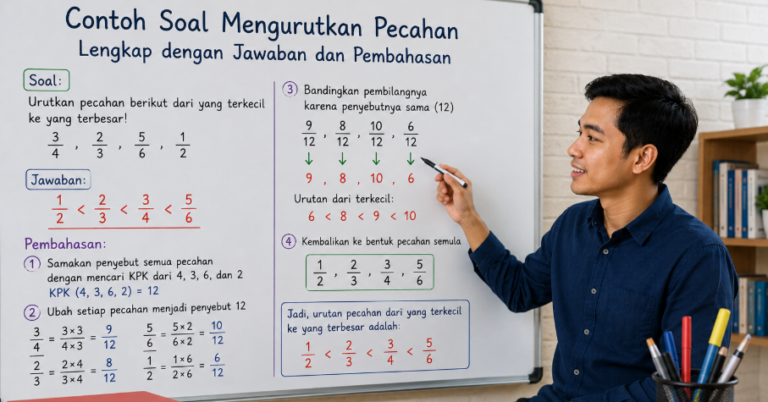 Contoh Soal Mengurutkan Pecahan
Lengkap dengan Jawaban dan Pembahasan
Soal:
Urutkan pecahan berikut dari yang terkecil
ke yang terbesar!
3/4 , 2/3 , 5/6 , 1/2
Jawaban:
1/2 < 2/3 < 3/4 < 5/6
Pembahasan:
1 Samakan penyebut semua pecahan
dengan mencari KPK dari 4, 3, 6, dan 2
KPK (4, 3, 6, 2) = 12
2 Ubah setiap pecahan menjadi penyebut 12
3/4 = 3×3/4×3 = 9/12 5/6 = 5×2/6×2 = 10/12
2/3 = 2×4/3×4 = 8/12 1/2 = 1×6/2×6 = 6/12
3 Bandingkan pembilangnya
karena penyebutnya sama (12)
9/12 , 8/12 , 10/12 , 6/12
↓ ↓ ↓ ↓
9 , 8 , 10 , 6
Urutan dari terkecil:
6 < 8 < 9 < 10
4 Kembalikan ke bentuk pecahan semula
1/2 , 2/3 , 3/4 , 5/6
Jadi, urutan pecahan dari yang terkecil
ke yang terbesar adalah:
1/2 < 2/3 < 3/4 < 5/6